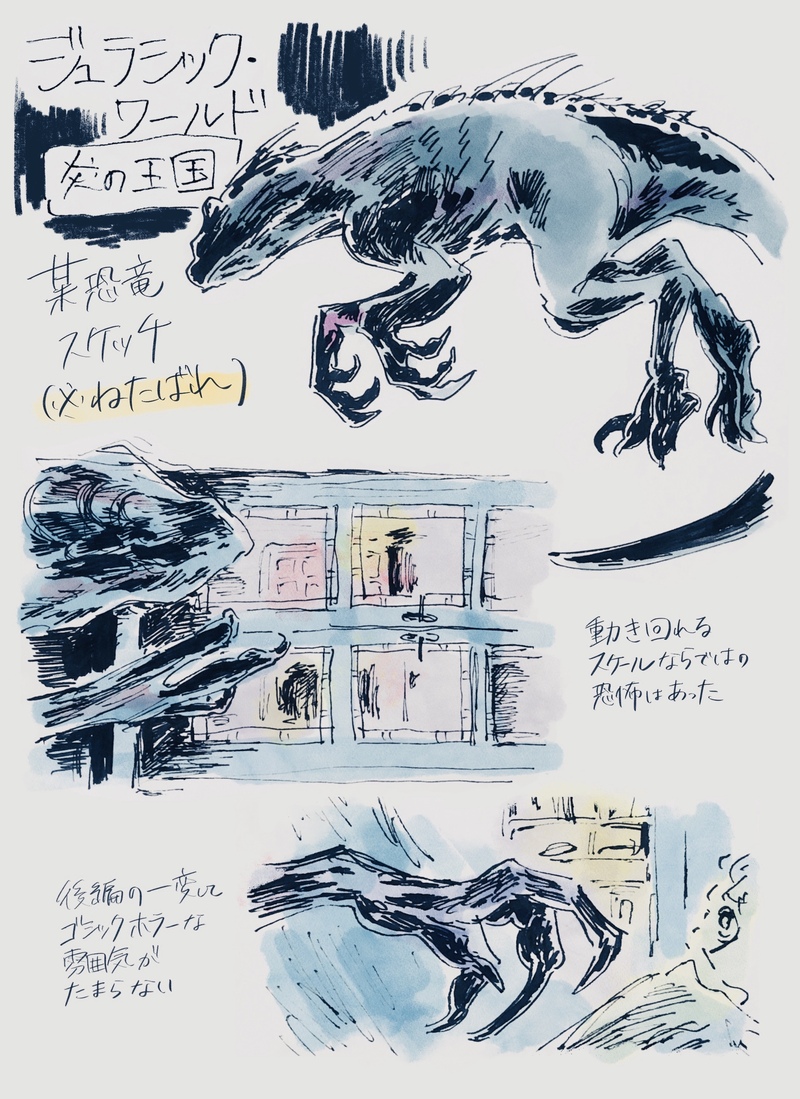 ジュラシック・
ワールド
炎の王国
某恐竜
スケッチ
(※ねたばれ)
動き回れる
スケールならではの
恐怖はあった
後編の一変して
ゴシックホラーな
雰囲気が
たまらない